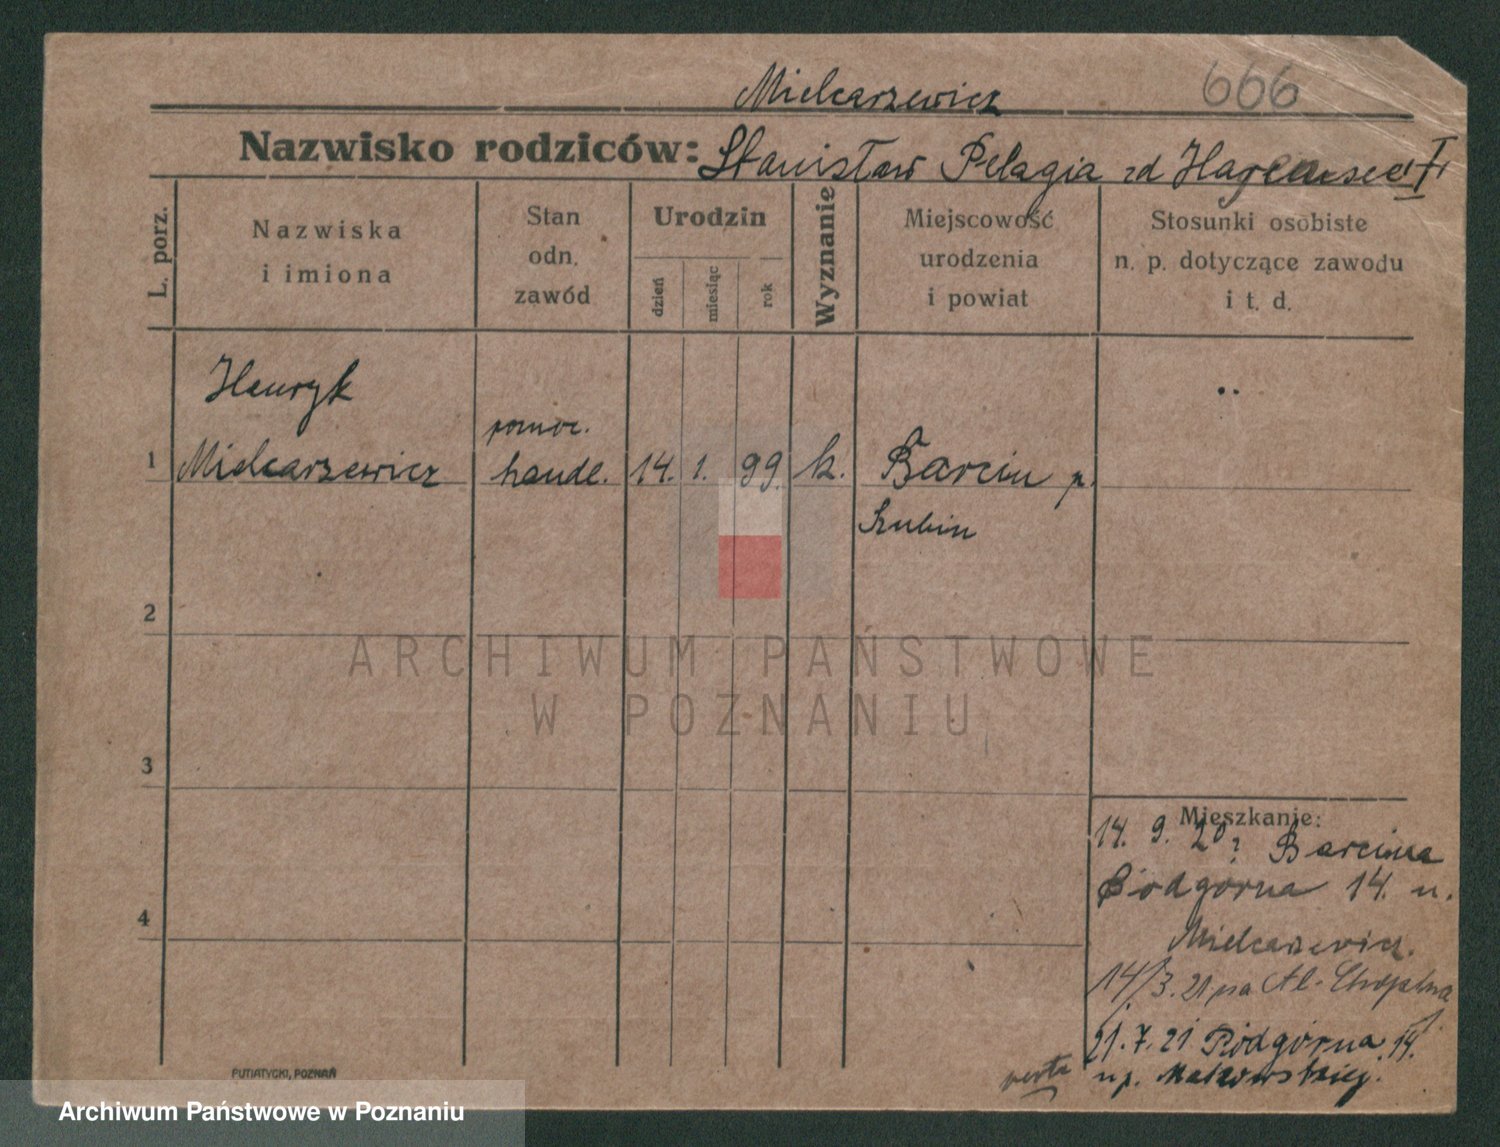 666
Mielcarzewicz
Nazwisko rodziców: Stanisław Pelagia zd
L. porz.
Nazwiska i imiona
Stan odn. zawód
Urodzin
dzień
miesiąc
rok
Wyznanie
Miejscowość urodzenia i powiat
Stosunki osobiste n. p. dotyczące zawodu i t. d.
Henryk
pomoc.
1 Mielcarzewicz handl. 14. 1. 99. k. Barcin p.
Szubin
2
ARCHIWUM PAŃSTWOWE
W POZNANIU
3
Mieszkanie:
14. 9. 20 z Barcina
Podgórna 14. u.
4
Mielcarzewicz.
14/3. 21 na
21. 7. 21 Podgórna 14.
verte
PUTIATYCKI, POZNAŃ
Archiwum Państwowe w Poznaniu